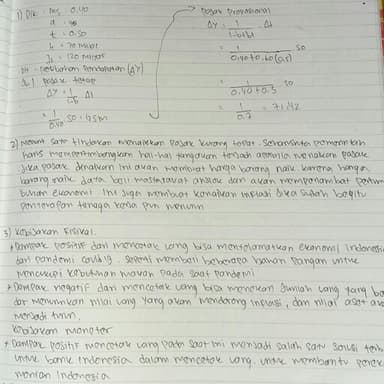 1) Dik : MPS 0,40
t = 0.50
I₀ = 70 Miliar
I₁ = 120 Miliar
Dit = Perubahan Pendapatan (ΔY)
Jwb/ Pajak tetap
ΔY = 1/1-b ΔI
= 1/0.40 50 =
Pajak Proporsional
ΔY = 1/1-b+bt ΔI
= 1/0.40+0.60(0,5) 50
= 1/0.40+0.3 50
= 1/0.7 = 71,42
2) Menurut saya tindakan menaikkan pajak kurang tepat. Seharusnya pemerintah
harus mempertimbangkan hal-hal
Jika pajak dinaikan ini akan membuat harga barang naik karena harga
barang naik daya beli masyarakat anjlok dan akan menghambat pertum
buhan ekonomi. Ini juga membuat kenaikan inflasi jika sudah begitu
penyerapan tenaga kerja pun menurun
3) Kebijakan Fisikal.
+ Dampak positif dari mencetak uang bisa menyelamatkan ekonomi Indonesia
dari pandemi covid 19. seperti membeli beberapa bahan pangan untuk
mencukupi kebutuhan pada saat pandemi
+ Dampak negatif dari mencetak uang bisa menekan jumlah uang yang
dan menurunkan nilai uang yang akan mendorong inflasi, dan nilai aset
menjadi turun.
Kebijakan moneter
+ Dampak positif mencetak uang pada saat ini menjadi salah satu solusi
untuk bank Indonesia dalam mencetak uang. untuk membantu
nomian Indonesia